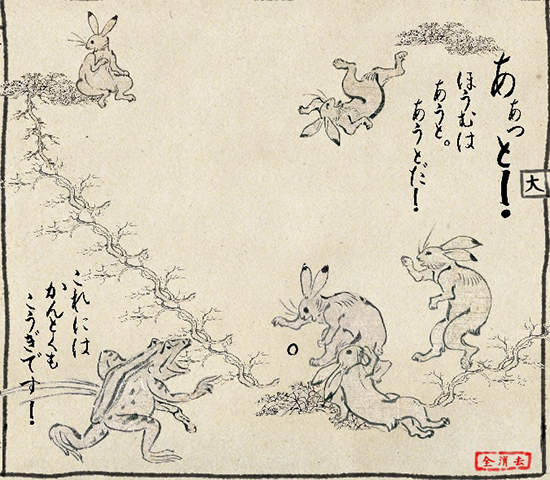 ああっとー!
ほうむは
あうと。
あうとだ!
大
これには
かんとくも
こうぎですー!
全消去